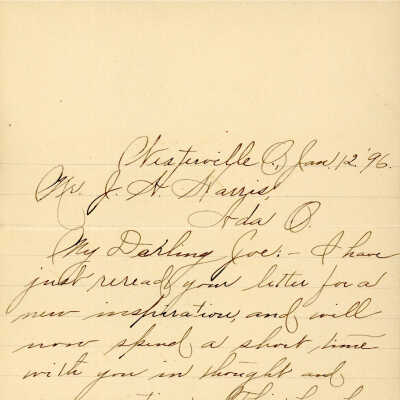 Westerville O., Jan. 12. '96.
Mr. J. H. Harris,
Ada O.
My Darling Joe: - I have
just reread your letter for a
new inspiration, and will
now spend a short time
with you in thought and